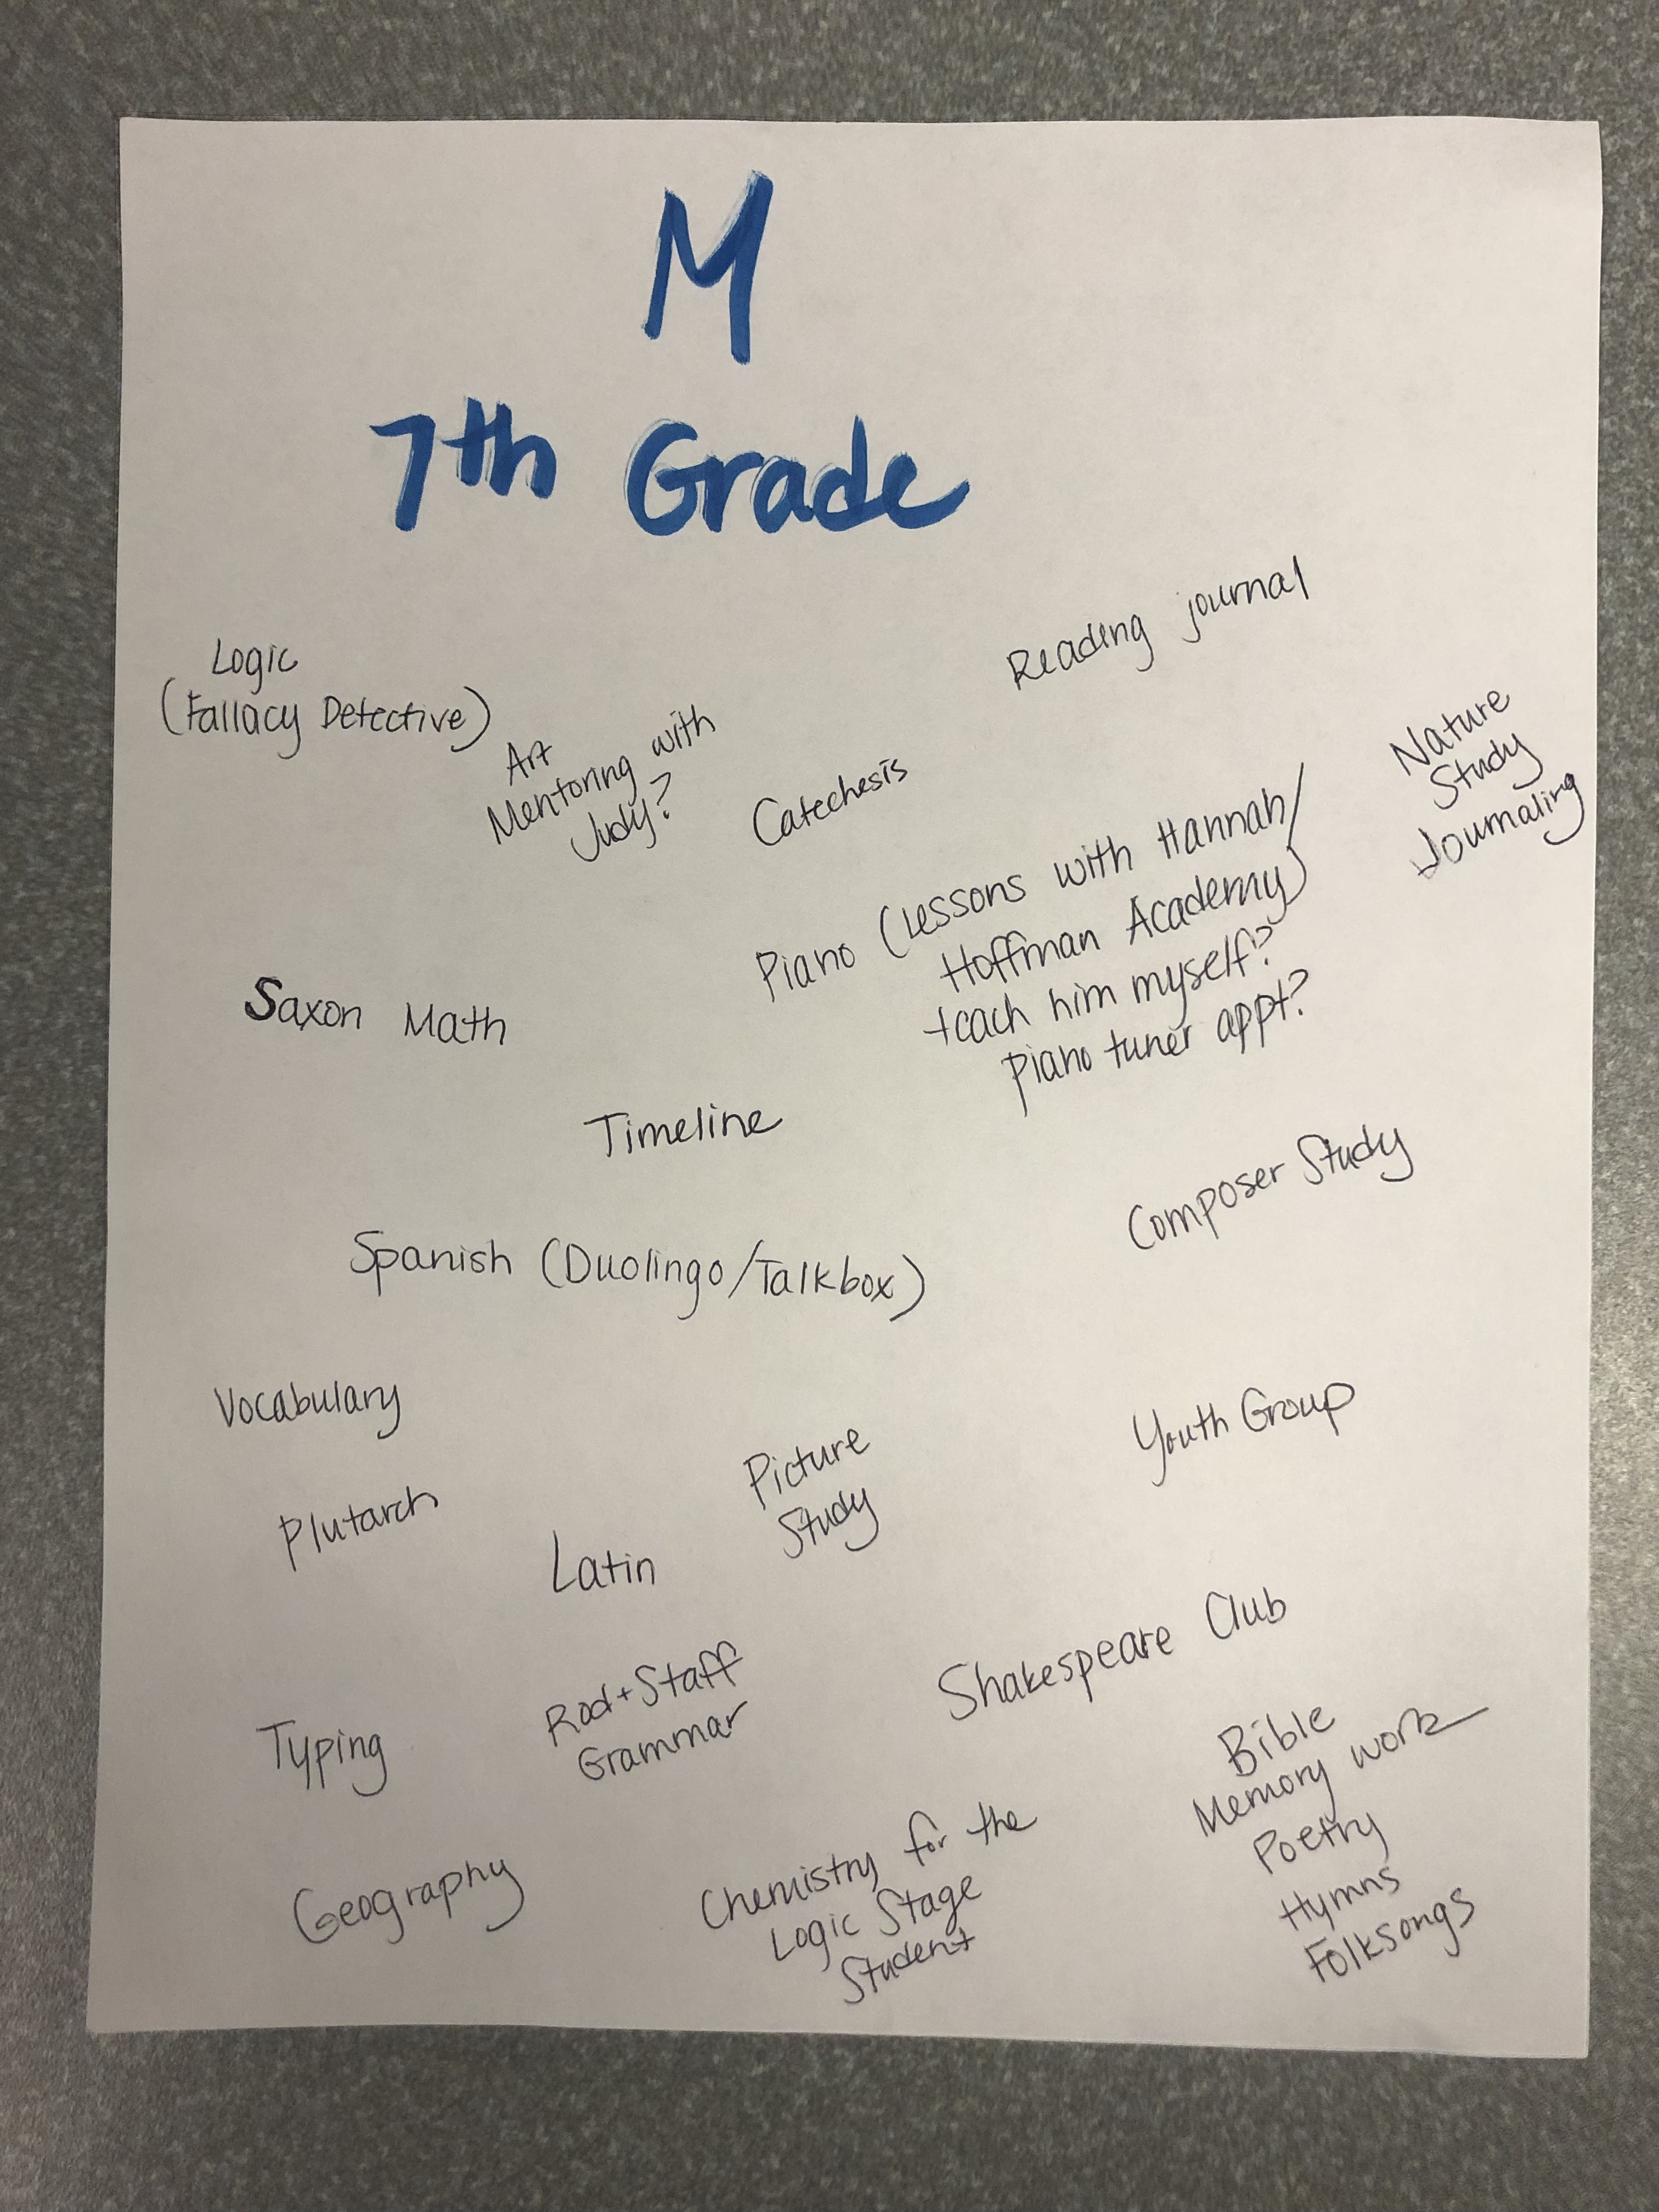 M
7th Grade
Reading journal
Logic
(Fallacy Detective)
Art
Mentoring with
Judy?
Catechesis
Nature
Study
Journaling
Piano (Lessons with Hannah/
Hoffman Academy)
teach him myself?
piano tuner appt?
Saxon Math
Timeline
Composer Study
Spanish (Duolingo/Talkbox)
Vocabulary
Youth Group
Picture
Study
Plutarch
Latin
Shakespeare Club
Rod + Staff
Grammar
Typing
Bible
Memory work
Poetry
Hymns
Folksongs
Geography
Chemistry for the
Logic Stage
Student